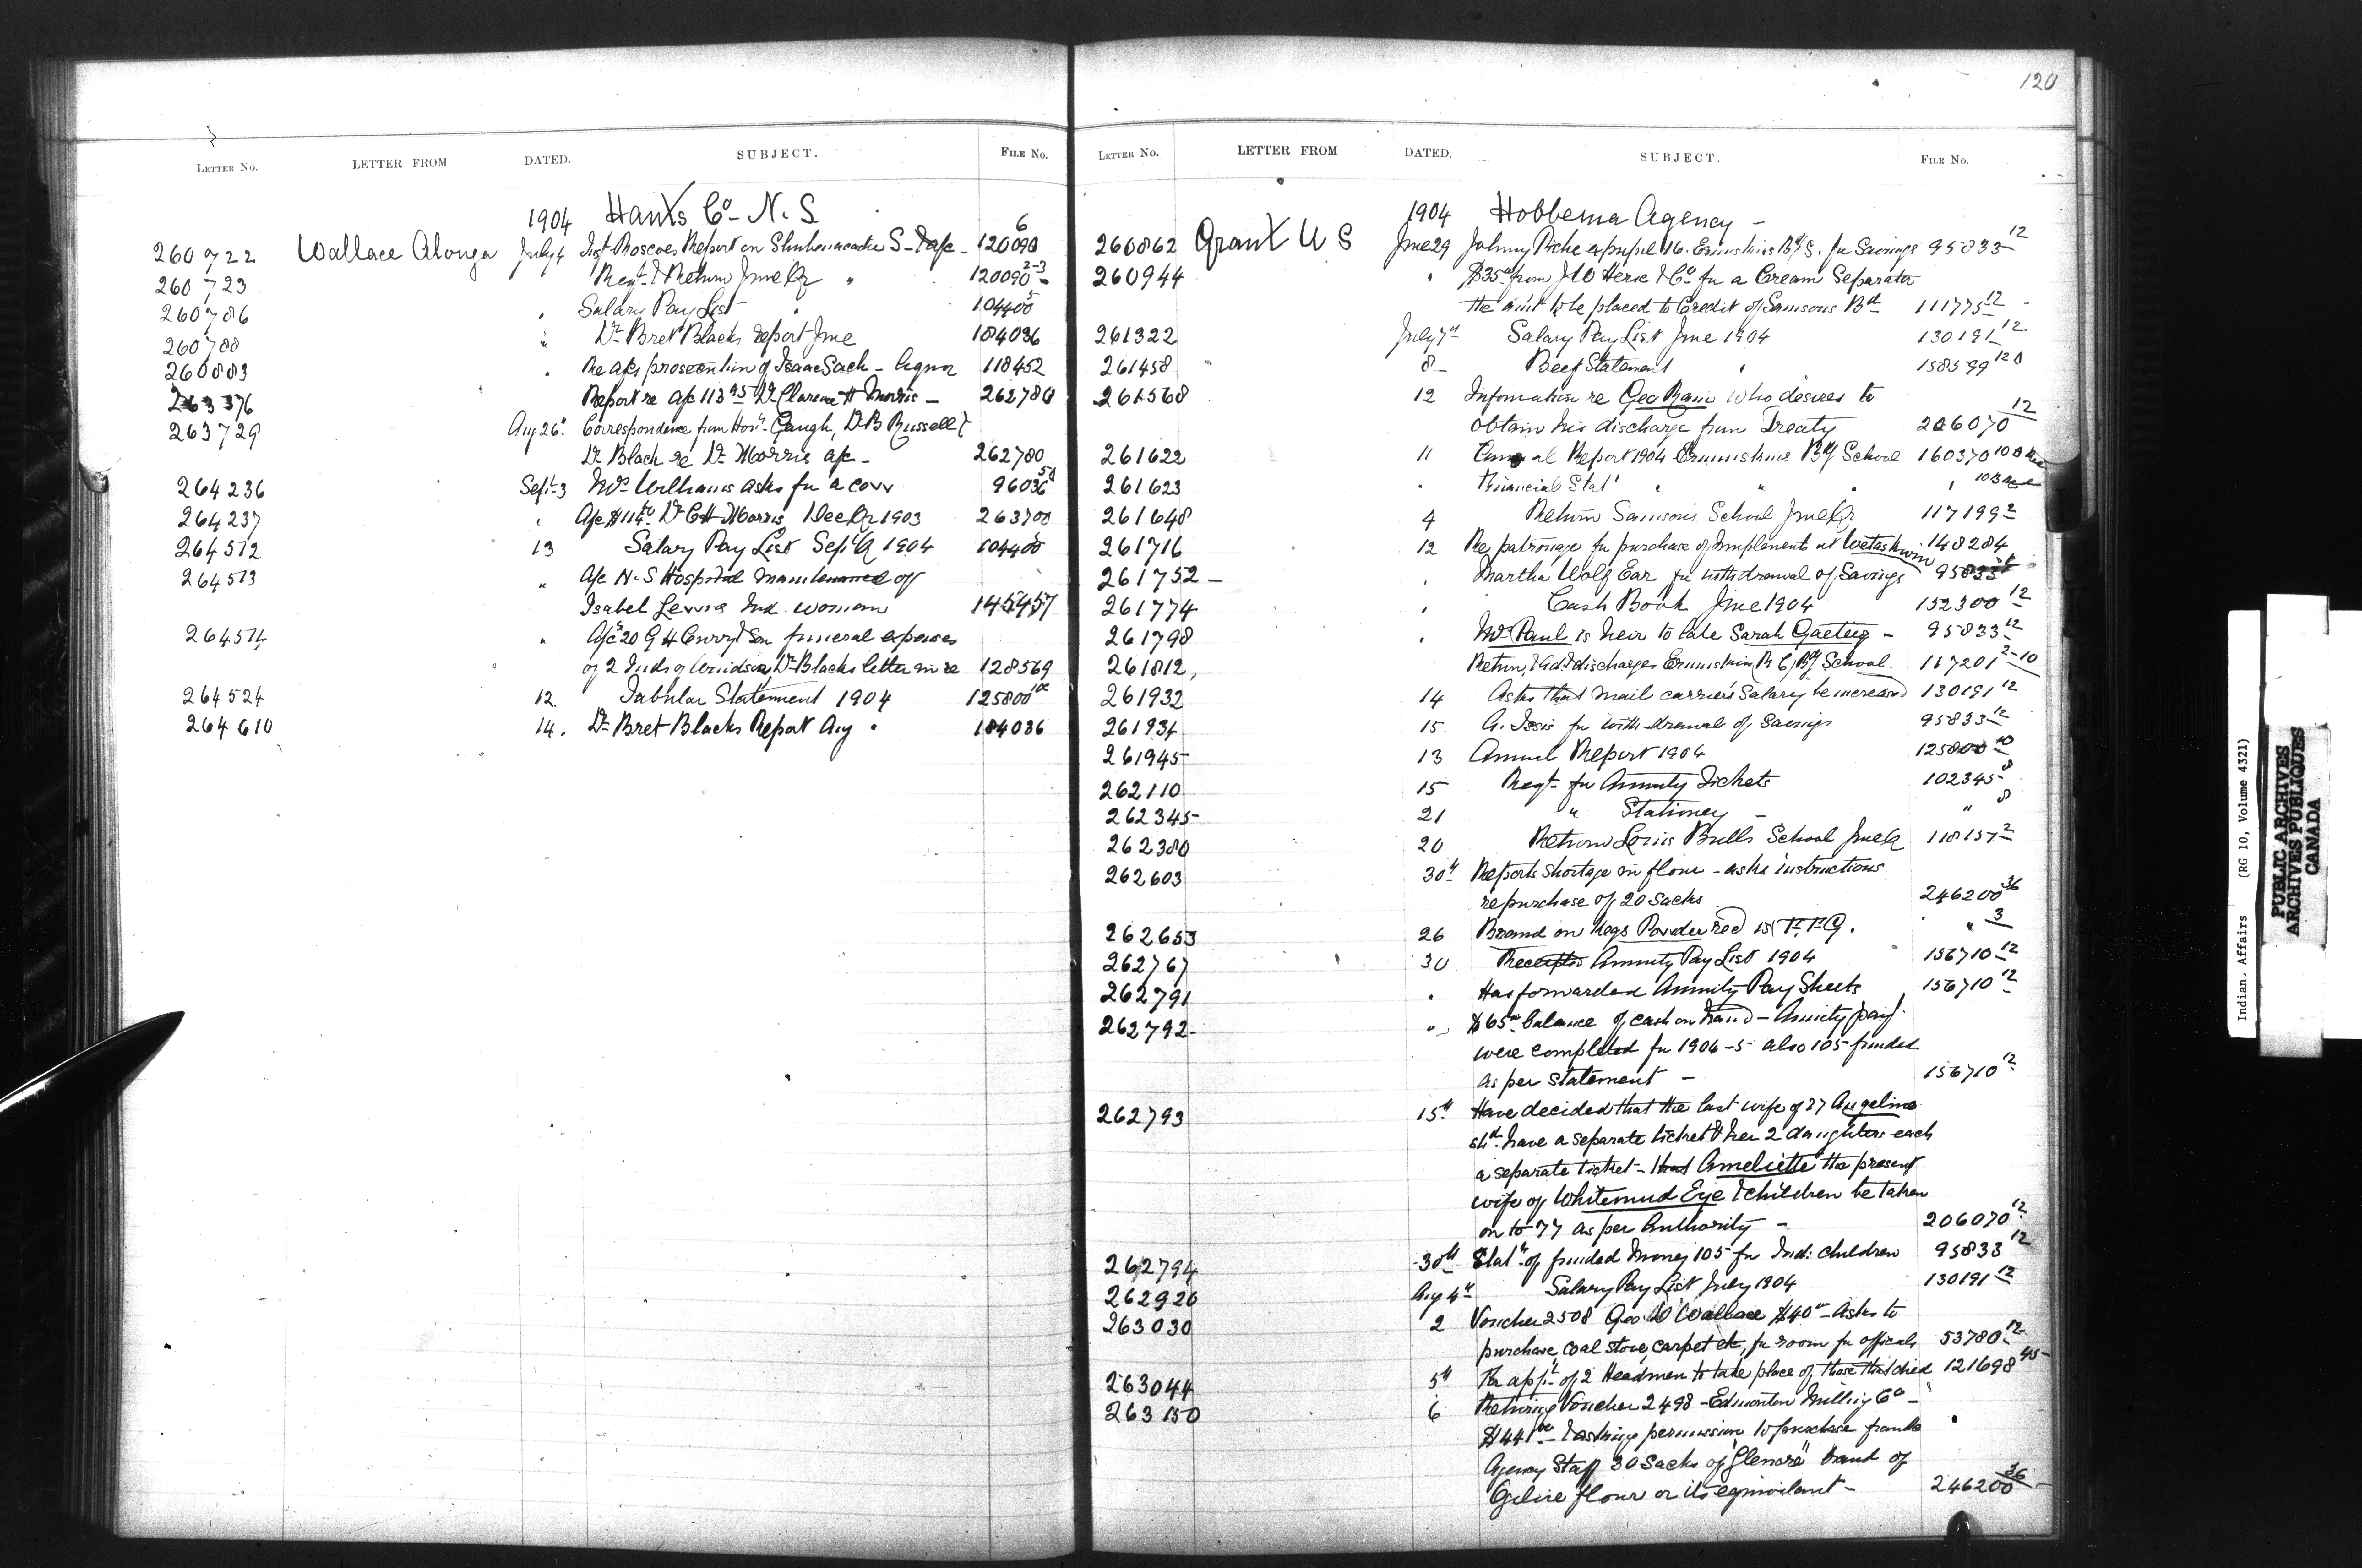 120
LETTER NO. LETTER FROM DATED. SUBJECT. FILE NO.
1904 Hants Co - N. S.
260722 Wallace Alonzo July 4 Inst Roscoes Report on Shubenacadie S - 120090 6
260723 Reqt & Return June Qr " 120090 2-3
260786 Salary Pay List " 104400 5
260788 Dr Bret Blacks report June 184036
260883 Re a/cs prosecution of Isaac Sack - liquor 118452
263376 Report re a/c 113 95 Dr Clarence H Morris - 262780
263729 Aug 26th Correspondence from Honl Gaugh, D B Russell &
Dr Black re Dr Morris a/c - 262780
264236 Sept 3 Mrs Williams asks for a cow 96036 50
264237 " A/c $114 Dr C H Morris Dec Qr 1903 263700
264512 13 Salary Pay List Sept Q 1904 104400 5
264513 " A/c N. S Hospital maintenance of
Isabel Lewis Ind. woman 145457
264514 " A/c 20 G H Curry & Son funeral expenses
of 2 Inds of Windsor, Dr Blacks letter in re 128569
264524 12 Tabular Statement 1904 125800
264610 14. Dr Bret Blacks Report Aug " 184036
LETTER NO. LETTER FROM DATED. SUBJECT. FILE NO.
1904 Hobbema Agency -
260862 Grant W S June 29 Johnny Riche ex pupil 16. Ermineskins Bg S. for Savings 95833 12
260944 " $35 from J W Herie & Co for a Cream Separator
the amt to be placed to Credit of Samsons Bd 111775 12
261322 July 7th Salary Pay List June 1904 130191 12
261458 8 - Beef Statement " 158599 12
261568 12 Information re Geo Rain who desires to
obtain his discharge from Treaty 206070 12
261622 11 Annual Report 1904 Ermineskins Bg School 160370 10
261623 " Financial Statt " " " "
261648 4 Return Samsons School June Qr 117199 2
261716 12 Re patronage for purchase of Implements at Wetaskiwin 148284
261752 - " Martha Wolf Ear for withdrawal of Savings 95833
261774 " Cash Book June 1904 152300 12
261798 " Wm Paul is heir to late Sarah Gaetieg - 95833 12
261812, Return, & Ad & discharges Ermineskin R C Bg School. 117201 2-10
261932 14 Asks that mail carriers Salary be increased 130191 12
261934 15 A. Issis for withdrawal of Savings 95833 12
261945 13 Annual Report 1904 125800 10
262110 15 Reqt for Annuity Tickets 102345 8
262345 21 " Stationery - " 8
262380 20 Return Louis Bulls School June Q 118157 2
262603 30th Reports shortage in flour - asks instructions
re purchase of 20 sacks 246200 36
262653 26 Brand on kegs Powder recd is F.F.G. " 3
262767 30 Receipted Annuity Pay List 1904 156710 12
262791 " Has forwarded Annuity Pay Sheets 156710 12
262792 - " $65 balance of cash on hand - Annuity pay
were completed for 1904-5 also 105 funded
as per statement - 156710 12
262793 15th Have decided that the last wife of 77 Angeline
shd. have a separate ticket & her 2 daughters each
a separate ticket - that Ameliette the present
wife of Whitemud Eye & children be taken
on to 77 as per Authority - 206070 12
262794 30th Statt of funded money 105 for Ind: children 95833 12
262920 Aug 4th Salary Pay List July 1904 130191 12
263030 2 Voucher 2508 Geo. W Wallace $40 - Asks to
purchase coal stove, carpet etc, for room for officials 53780 12
263044 5th Re appt of 2 Headmen to take place of those that died 121698 45
263150 6 Returning Voucher 2498 - Edmonton Milling Co -
$441 - & asking permission to purchase from the
Agency Staff 30 Sacks of "Glenora" brand of
Ogilvie flour or its equivalent - 246200 36
Indian Affairs (RG 10, Volume 4321)
PUBLIC ARCHIVES
ARCHIVES PUBLIQUES
CANADA